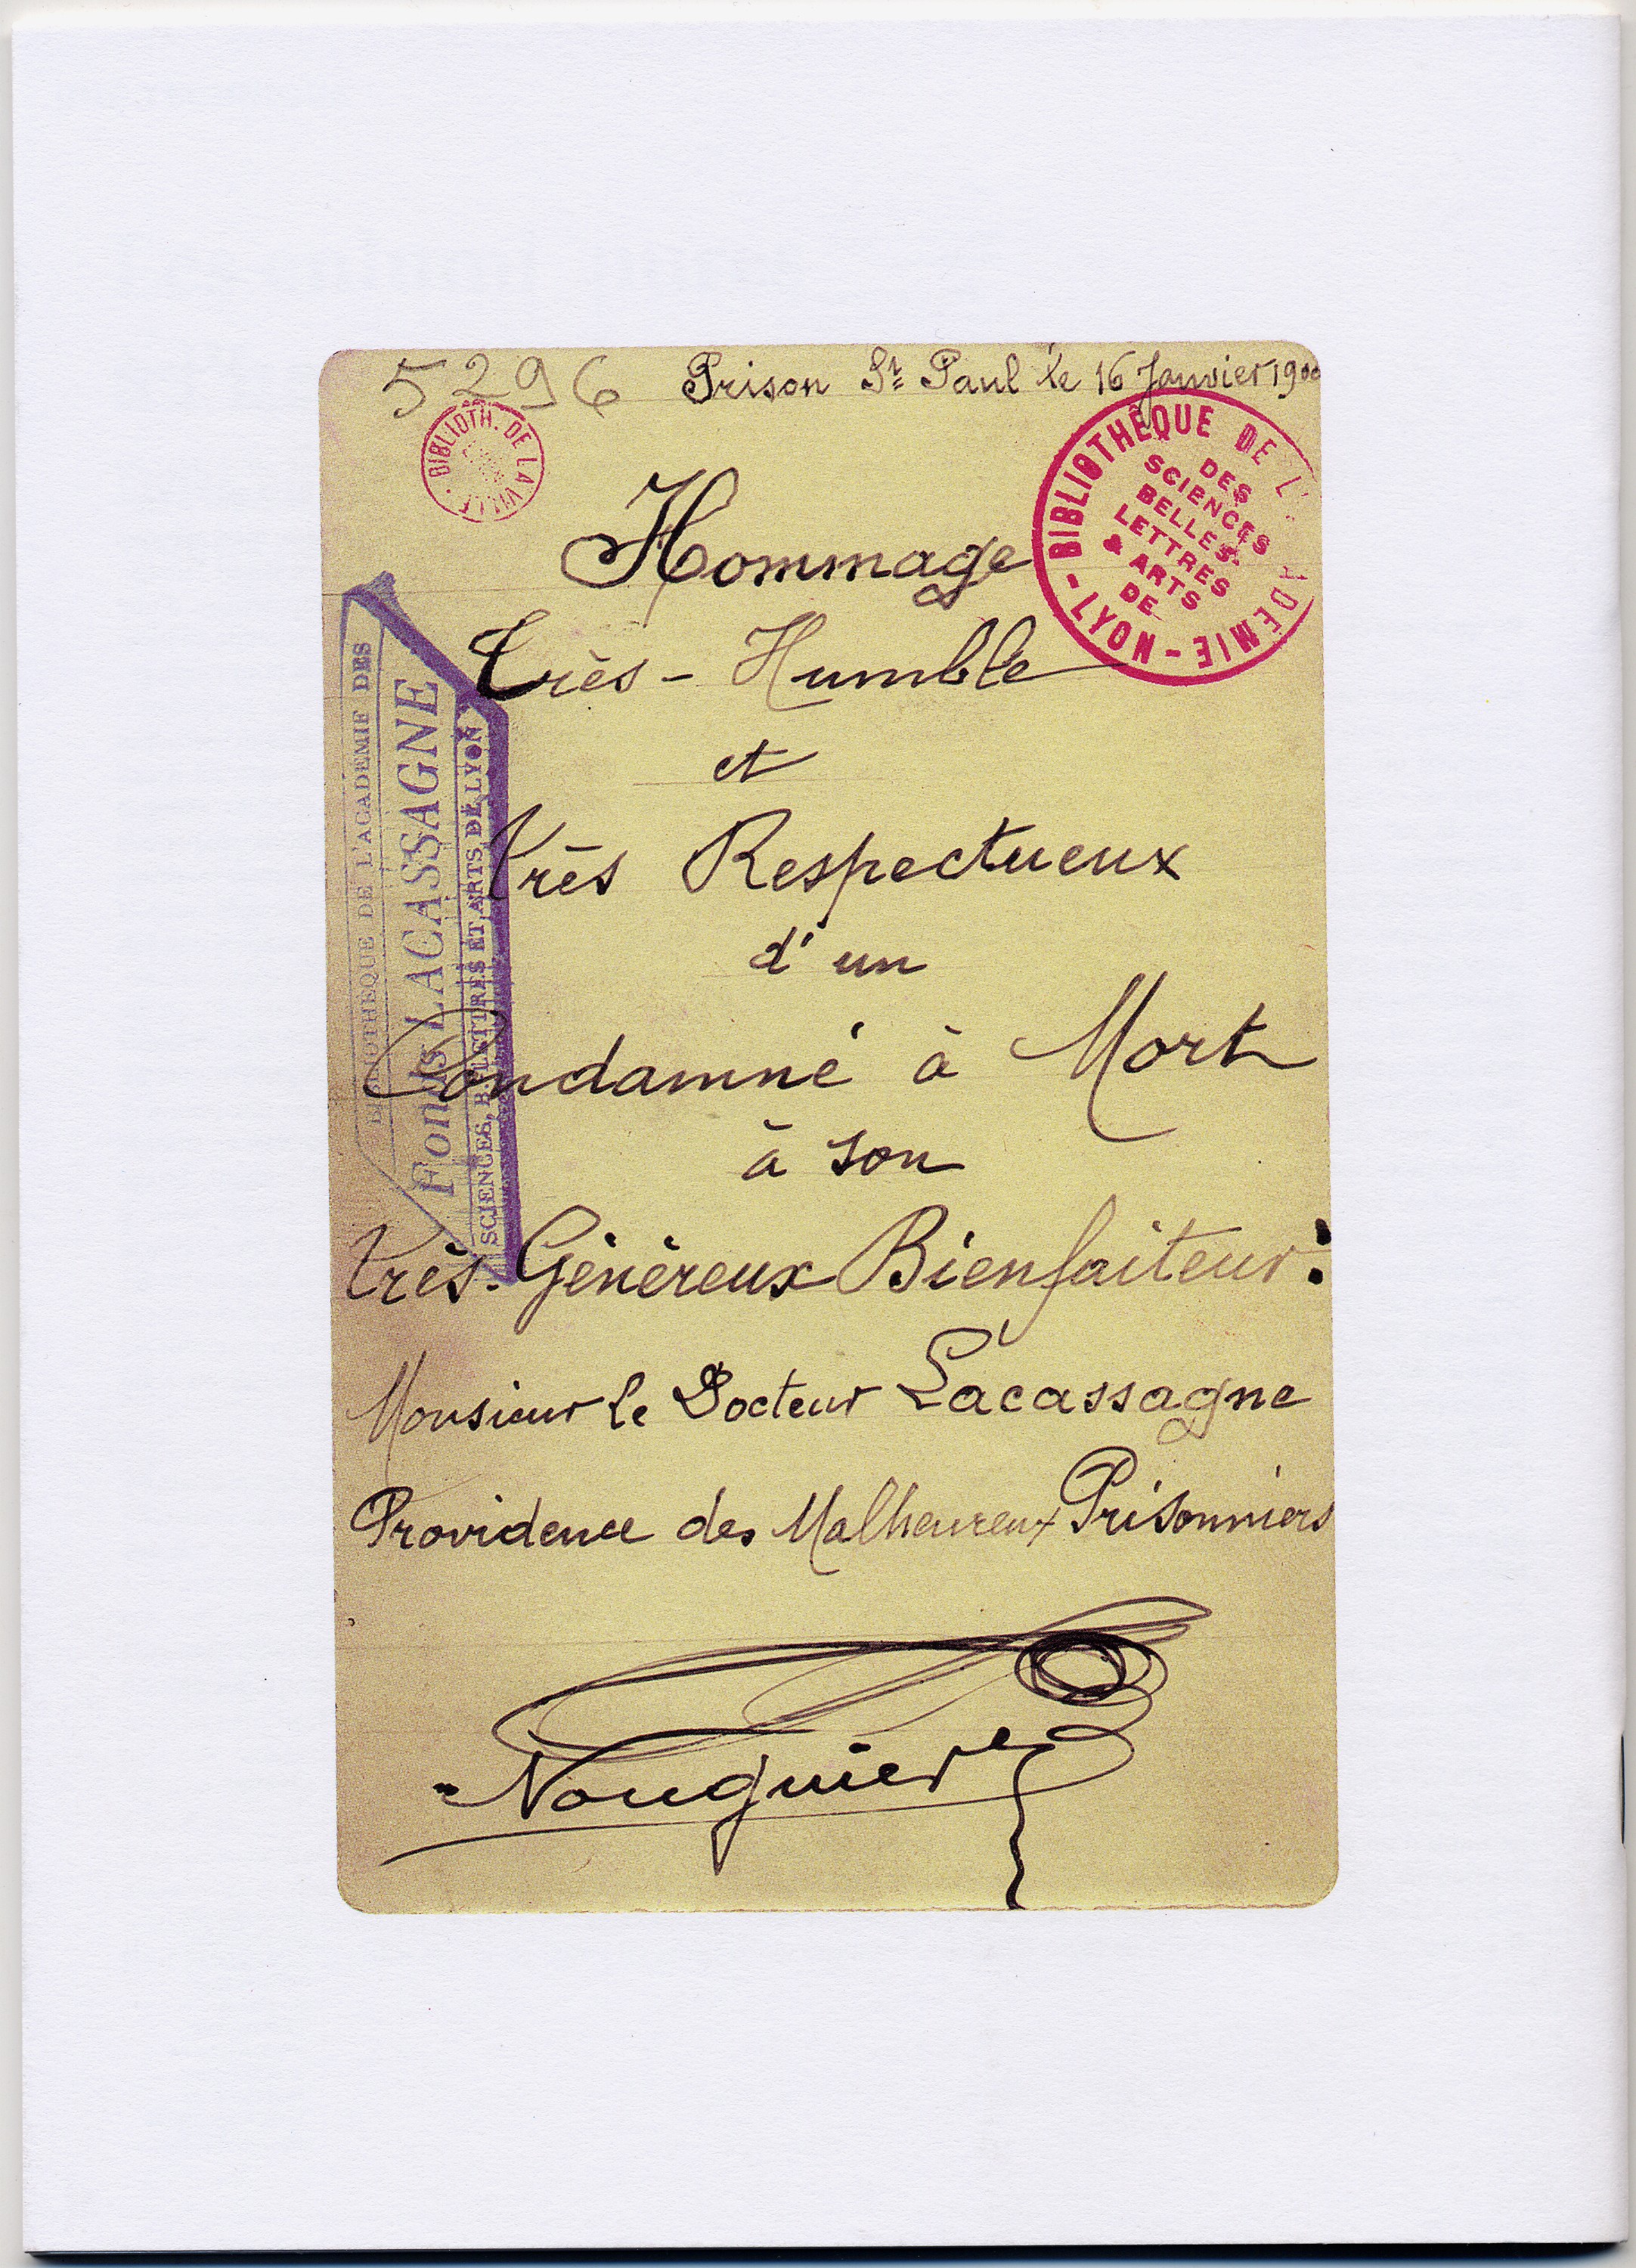 5296 Prison St Paul le 16 Janvier 1900
BIBLIOTH. DE LA VILLE
BIBLIOTHÈQUE DE L'
DES
SCIENCES
BELLES-
LETTRES
& ARTS
DE
- LYON -
Hommage
Très - Humble
et
Très Respectueux
d'un
Condamné à Mort
à son
Très-Généreux Bienfaiteur:
Monsieur le Docteur Lacassagne
Providence des Malheureux Prisonniers
Nouguier
BIBLIOTHEQUE DE L'ACADEMIE DES
Fonds LACASSAGNE
SCIENCES, B.-LETTRES ET ARTS DE LYON